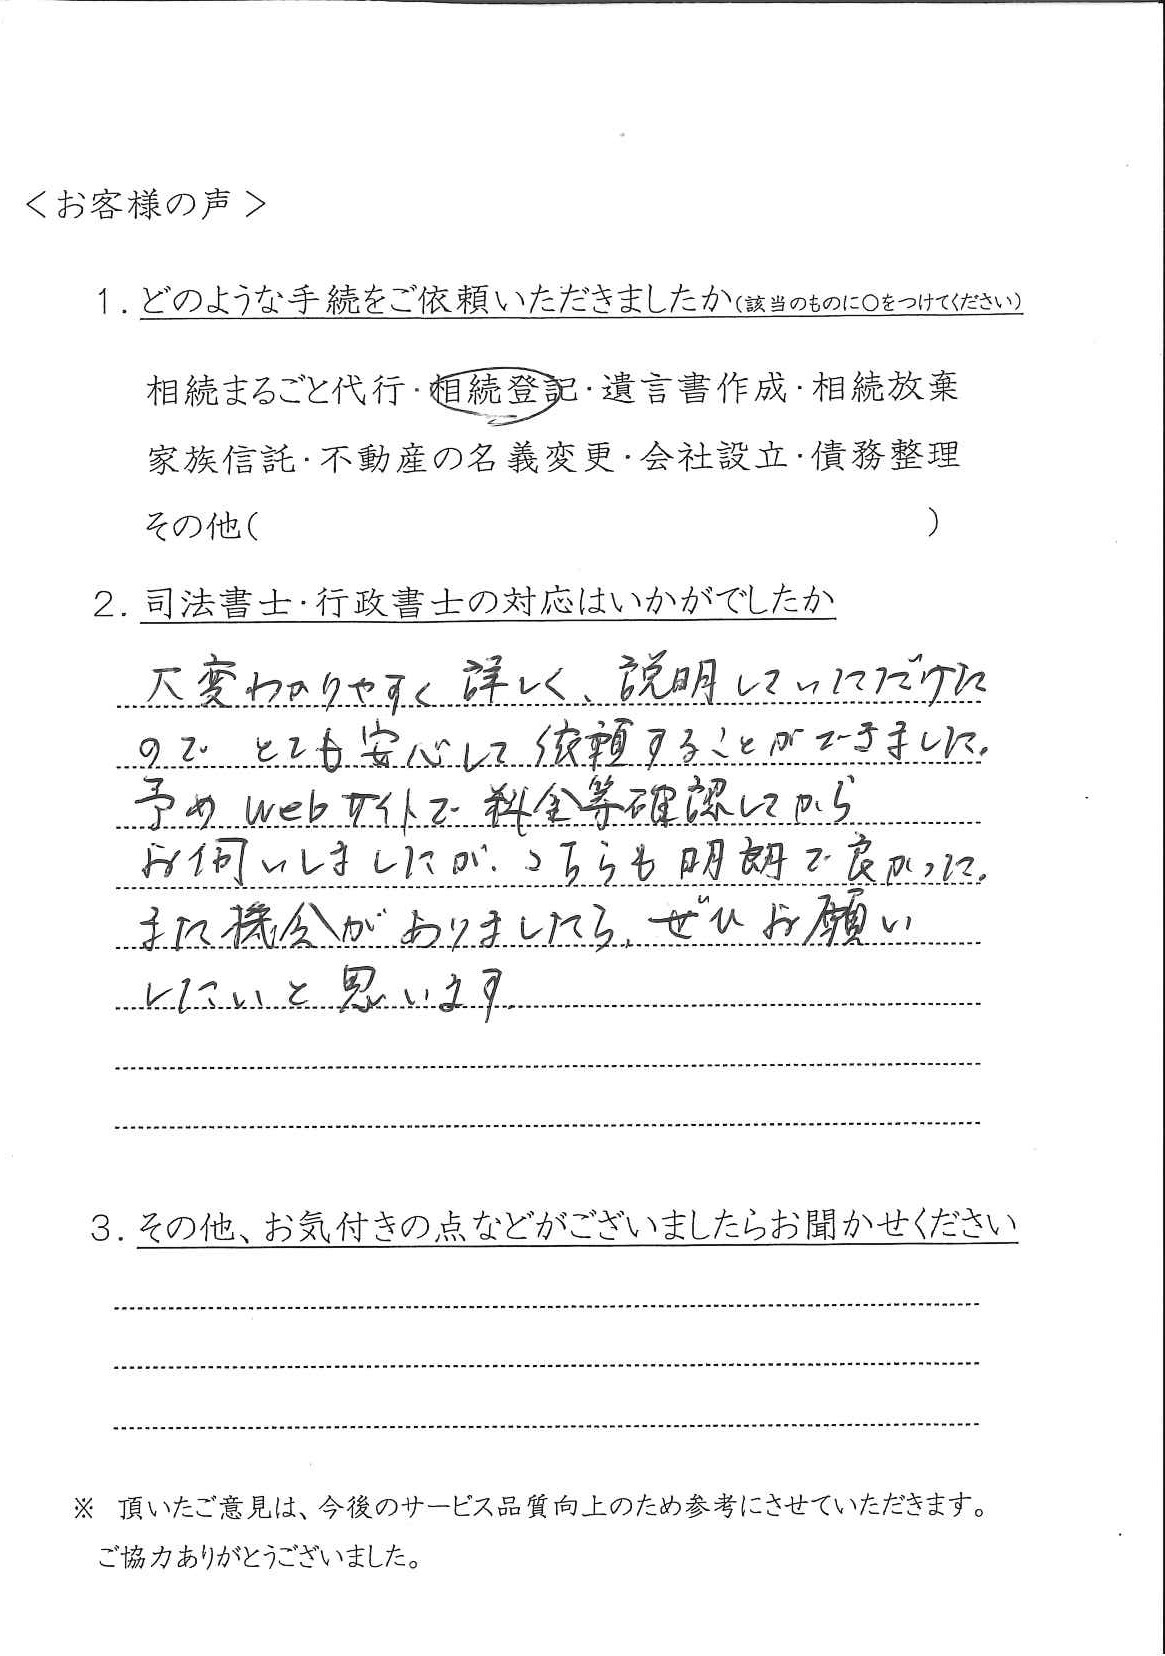 ＜お客様の声＞
１．どのような手続をご依頼いただきましたか（該当のものに○をつけてください）
相続まるごと代行・相続登記・遺言書作成・相続放棄
家族信託・不動産の名義変更・会社設立・債務整理
その他（　　　　　　　　　　　　　　　　　　）
２．司法書士・行政書士の対応はいかがでしたか
大変わかりやすく詳しく、説明していただけた
のでとても安心して依頼することができました。
予めwebサイトで料金等確認してから
お伺いしましたが、こちらも明朗で良かった。
また機会がありましたら、ぜひお願い
したいと思います。
３．その他、お気付きの点などがございましたらお聞かせください
※　頂いたご意見は、今後のサービス品質向上のため参考にさせていただきます。
ご協力ありがとうございました。